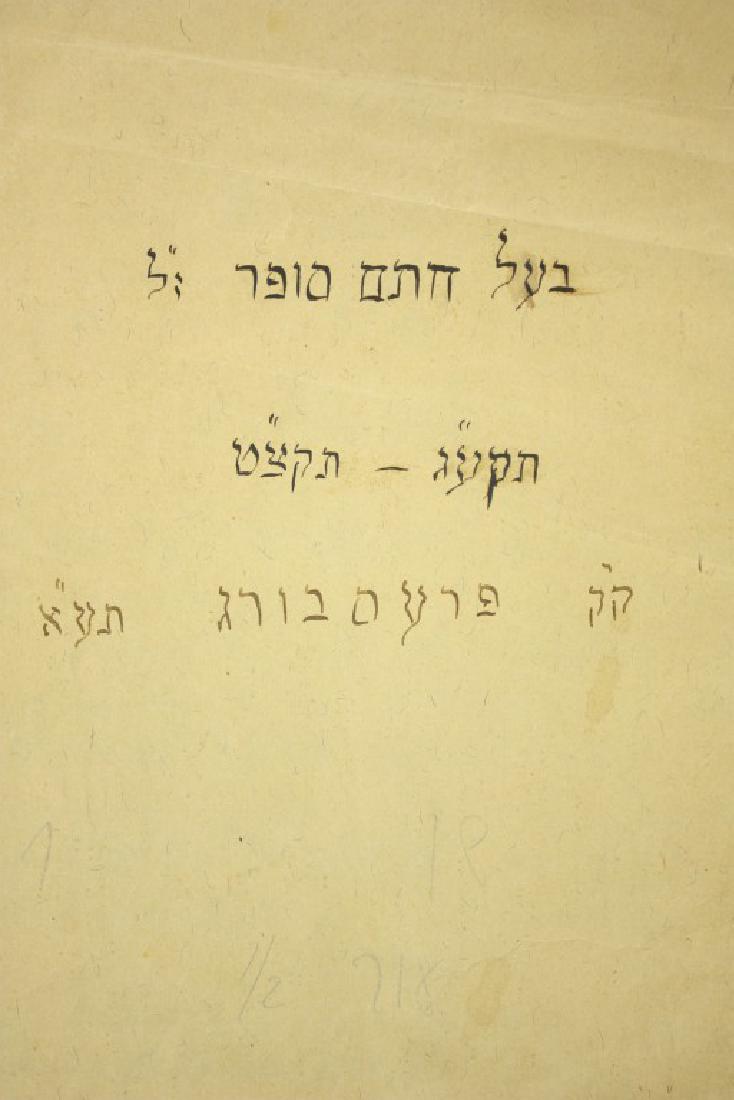 בעל חתם סופר ז״ל
תקע״ג – תקצ״ט
ק״ק פרעסבורג תע״א